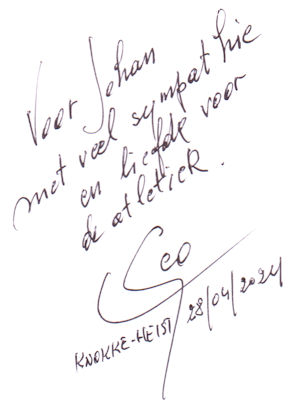 Voor Johan
met veel sympathie
en liefde voor
de atletiek.
Leo
KNOKKE-HEIST 28/04/2024